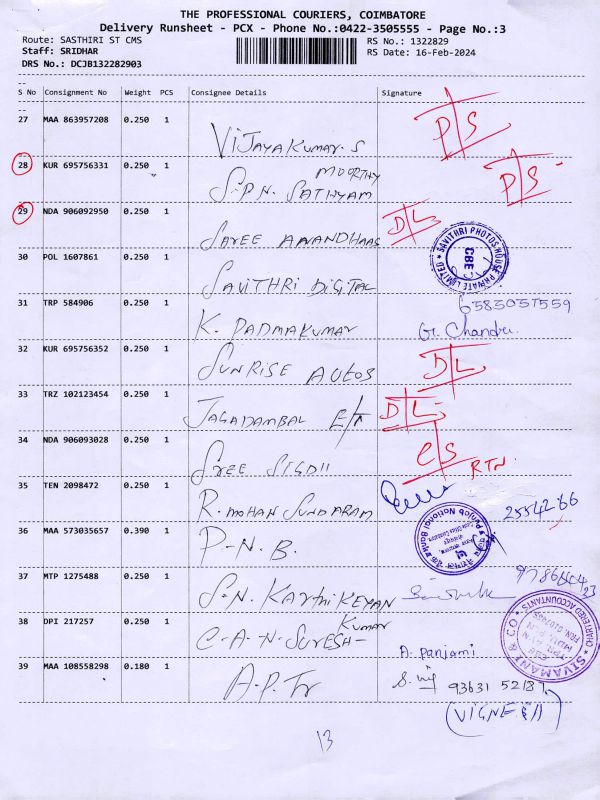 THE PROFESSIONAL COURIERS, COIMBATORE
Delivery Runsheet - PCX - Phone No.:0422-3505555 - Page No.:3
Route: SASTHIRI ST CMS
RS No.: 1322829
Staff: SRIDHAR
RS Date: 16-Feb-2024
DRS No.: DCJB132282903
S No Consignment No Weight PCS Consignee Details Signature
27 MAA 863957208 0.250 1 VIJAYAKUMAR. S P/S
28 KUR 695756331 0.250 1 S.P.N. SATHYAM MOORTHY P/S
29 NDA 906092950 0.250 1 SREE ANANDHAAS D/L
30 POL 1607861 0.250 1 SAVITHRI DIGITAL
SAVITHRI PHOTOS HOUSE PRIVATE LIMITED ★ CBE
31 TRP 584906 0.250 1 K. PADMAKUMAR 6383057559
G. Chandru.
32 KUR 695756352 0.250 1 SUNRISE AUTOS D/L
33 TRZ 102123454 0.250 1 JAGADAMBAL D/L
34 NDA 906093028 0.250 1 SREE C/S RTN.
35 TEN 2098472 0.250 1 R. MOHAN SUNDARAM 25542-66
36 MAA 573035657 0.390 1 P.N.B.
Punjab National Bank
37 MTP 1275488 0.250 1 S.N. KARTHIKEYAN
38 DPI 217257 0.250 1 C.A.N. SURESH KUMAR
SIVAMANI & CO ★ CHARTERED ACCOUNTANTS
A. Panjami
39 MAA 108558298 0.180 1 A.P.Tr
93631 52187
13